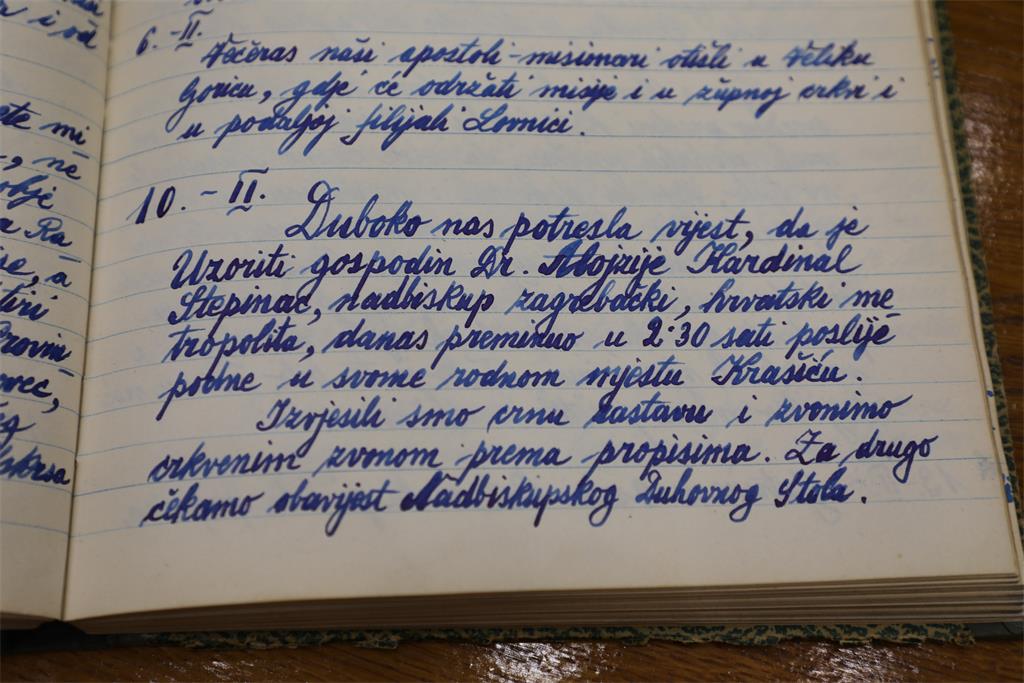 r i od
6. - II.
Večeras naši apostoli-misionari otišli u Veliku
Goricu, gdje će održati misije i u župnoj crkvi i
u podaljoj filijali Lomnici.
ete mi
-, ne
oblje
a Ra-
se, a
tiri
Provin
ovec,
eg
Uskrsa
10. - II. Duboko nas potresla vijest, da je
Uzoriti gospodin Dr. Alojzije Kardinal
Stepinac, nadbiskup zagrebački, hrvatski me
tropolita, danas preminuo u 2·30 sati poslije
podne u svome rodnom mjestu Krašiću.
Izvjesili smo crnu zastavu i zvonimo
crkvenim zvonom prema propisima. Za drugo
čekamo obavijest Nadbiskupskog Duhovnog Stola.